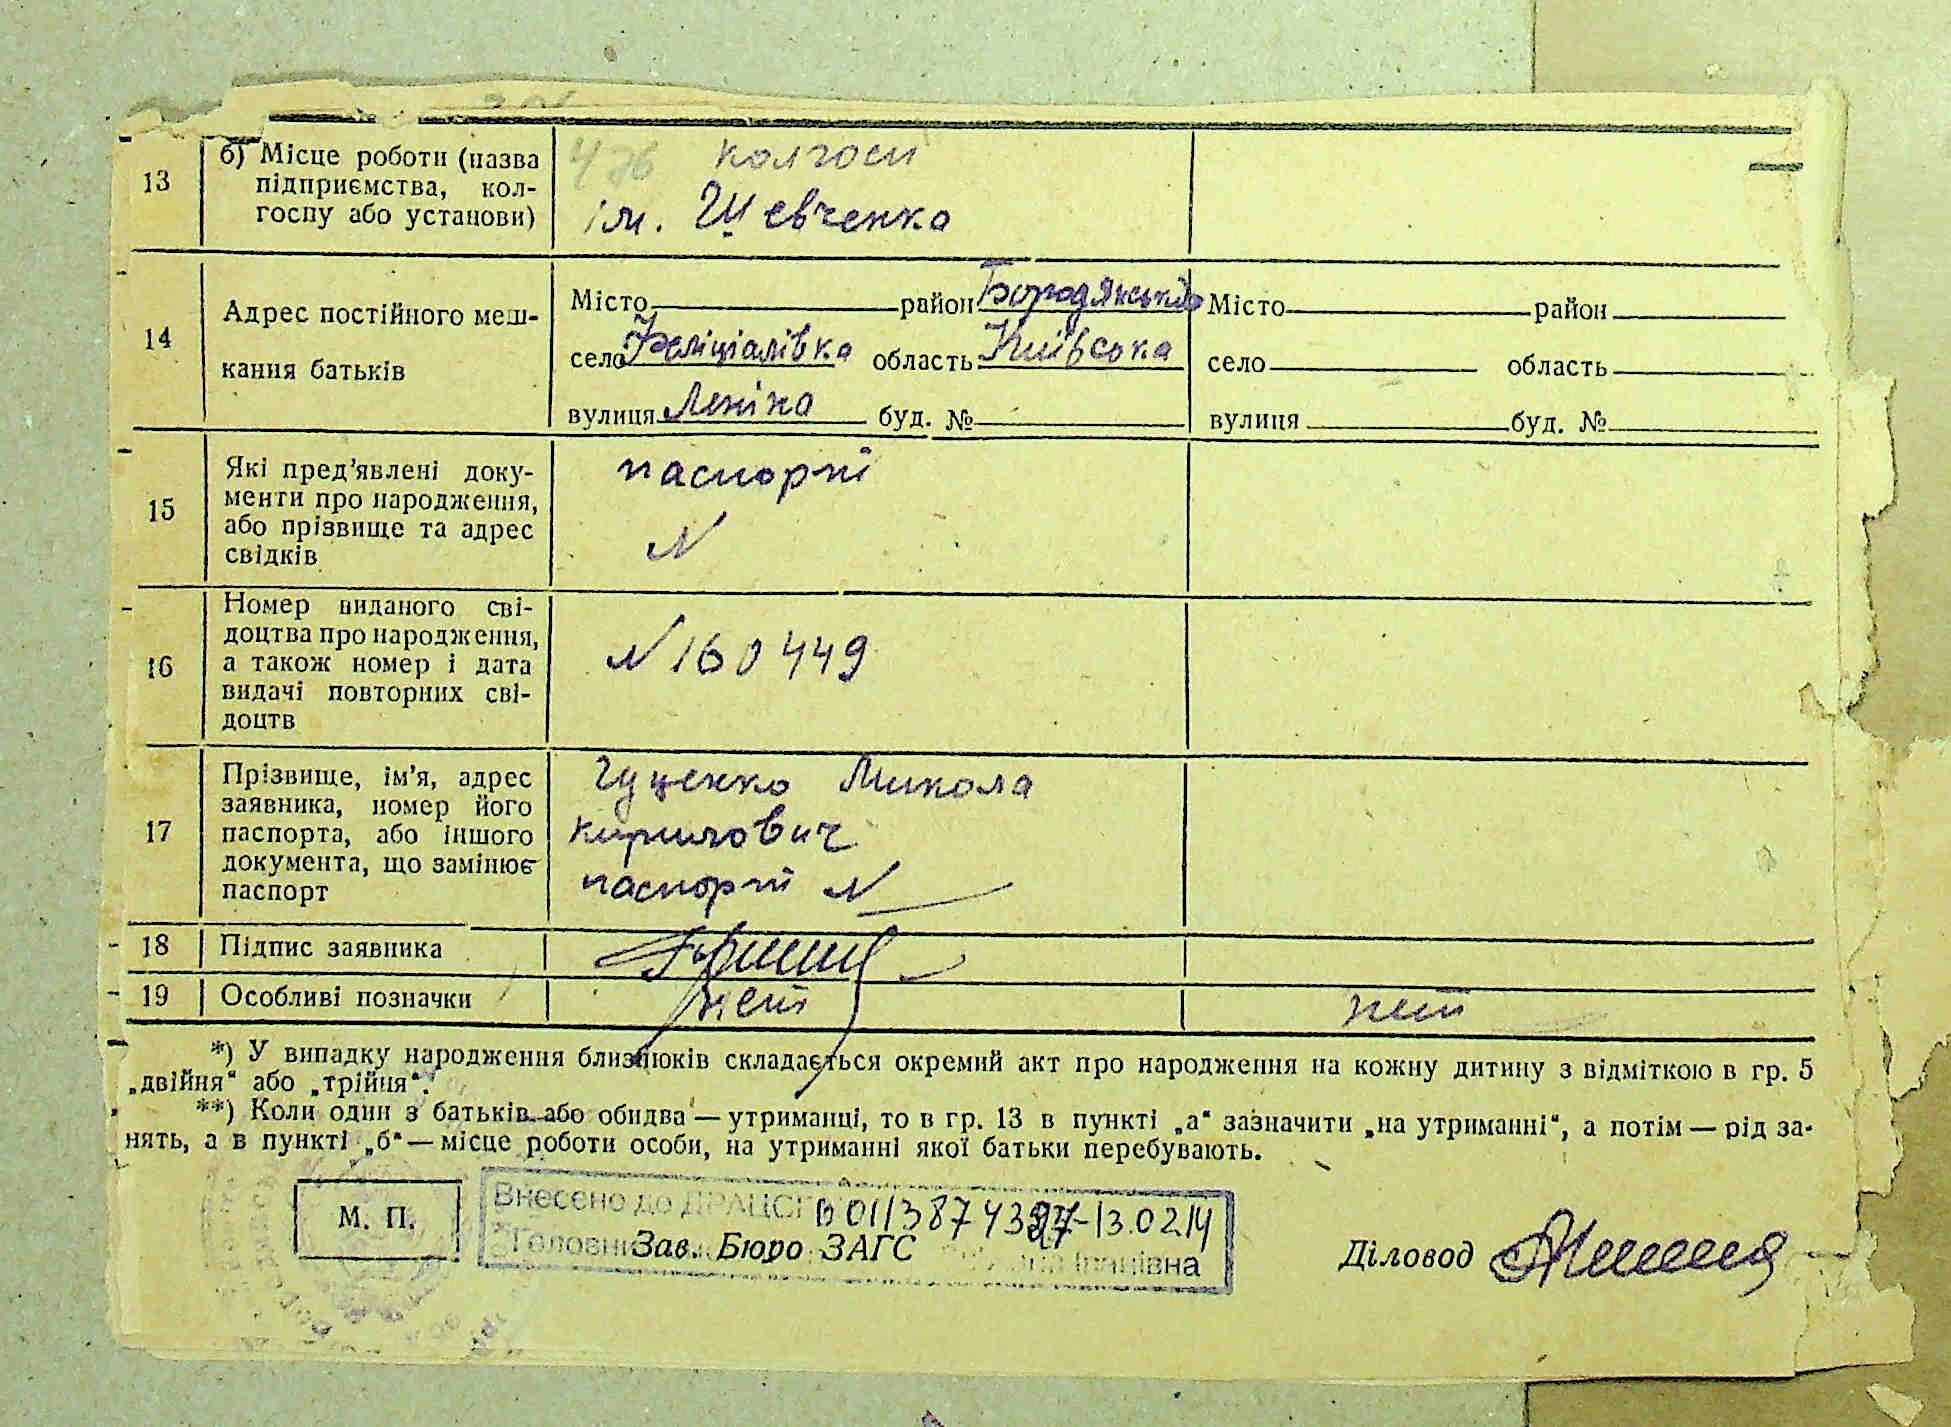 13
б) Місце роботи (назва
підприємства, кол-
госпу або установи)
476 колгосп
ім. Шевченка
14
Адрес постійного меш-
кання батьків
Місто район Бородянський
село Феліціалівка область Київська
вулиця Леніна буд. №
Місто район
село область
вулиця буд. №
15
Які пред'явлені доку-
менти про народження,
або прізвище та адрес
свідків
паспорт
N
16
Номер виданого сві-
доцтва про народження,
а також номер і дата
видачі повторних сві-
доцтв
N 160449
17
Прізвище, ім'я, адрес
заявника, номер його
паспорта, або іншого
документа, що замінює
паспорт
Гуценко Микола
Кирилович
паспорт N
18 Підпис заявника
19 Особливі позначки нет нет
*) У випадку народження близнюків складається окремий акт про народження на кожну дитину з відміткою в гр. 5
„двійня“ або „трійня“.
**) Коли один з батьків або обидва — утриманці, то в гр. 13 в пункті „а“ зазначити „на утриманні“, а потім — рід за-
нять, а в пункті „б“ — місце роботи особи, на утриманні якої батьки перебувають.
М. П.
Внесено до ДРАЦСГ
Зав. Бюро ЗАГС
Іванівна
Діловод